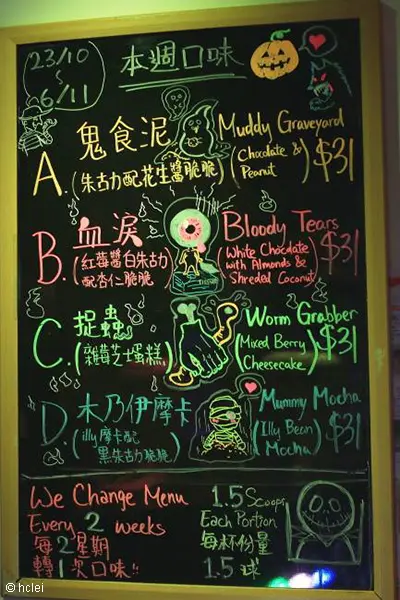 23/10
~
6/11
本週口味
A.
鬼食泥
(朱古力配花生醬脆脆)
Muddy Graveyard
(Chocolate &
Peanut)
$31
B.
血淚
(紅莓醬白朱古力
配杏仁脆脆)
Bloody Tears
(White Chocolate
with Almonds &
Shreded Coconut)
$31
C.
捉蟲
(雜莓芝士蛋糕)
Worm Grabber
(Mixed Berry
Cheesecake)
$31
D.
木乃伊摩卡
(illy摩卡配
黑朱古力脆脆)
Mummy Mocha
(Illy Bean
Mocha)
$31
We Change Menu
Every 2 weeks
每2星期
轉1次口味!!
1.5 Scoops
Each Portion
每杯份量
1.5 球
© hclei